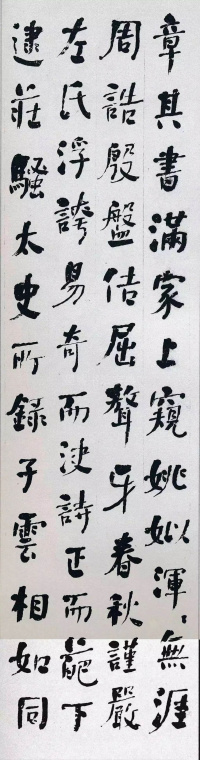 章其書滿家上窺姚姒渾〻無涯
周誥殷盤佶屈聱牙春秋謹嚴
左氏浮誇易奇而法詩正而葩下
逮莊騷太史所錄子雲相如同